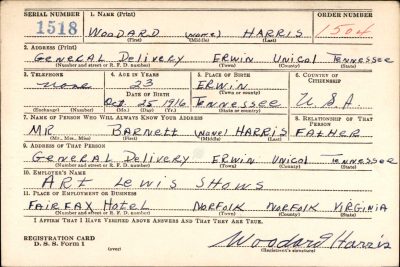 SERIAL NUMBER 1. NAME (Print) ORDER NUMBER
1518 WOODARD (NONE) HARRIS 1504
(First) (Middle) (Last)
2. ADDRESS (Print)
GENERAL DELIVERY ERWIN UNICOI TENNESSEE
(Number and street or R. F. D. number) (Town) (County) (State)
3. TELEPHONE 4. AGE IN YEARS 5. PLACE OF BIRTH 6. COUNTRY OF CITIZENSHIP
NONE 23 ERWIN
DATE OF BIRTH (Town or county)
Oct. 25 1916 TENNESSEE U.S.A.
(Exchange) (Number) (Mo.) (Day) (Yr.) (State or country)
7. NAME OF PERSON WHO WILL ALWAYS KNOW YOUR ADDRESS 8. RELATIONSHIP OF THAT PERSON
MR BARNETT (NONE) HARRIS FATHER
(Mr., Mrs., Miss) (First) (Middle) (Last)
9. ADDRESS OF THAT PERSON
GENERAL DELIVERY ERWIN UNICOI TENNESSEE
(Number and street or R. F. D. number) (Town) (County) (State)
10. EMPLOYER'S NAME
ART LEWIS SHOWS
11. PLACE OF EMPLOYMENT OR BUSINESS
FAIRFAX HOTEL NORFOLK NORFOLK VIRGINIA
(Number and street or R. F. D. number) (Town) (County) (State)
I AFFIRM THAT I HAVE VERIFIED ABOVE ANSWERS AND THAT THEY ARE TRUE.
REGISTRATION CARD
D. S. S. Form 1 (over) Woodard Harris
(Registrant's signature)